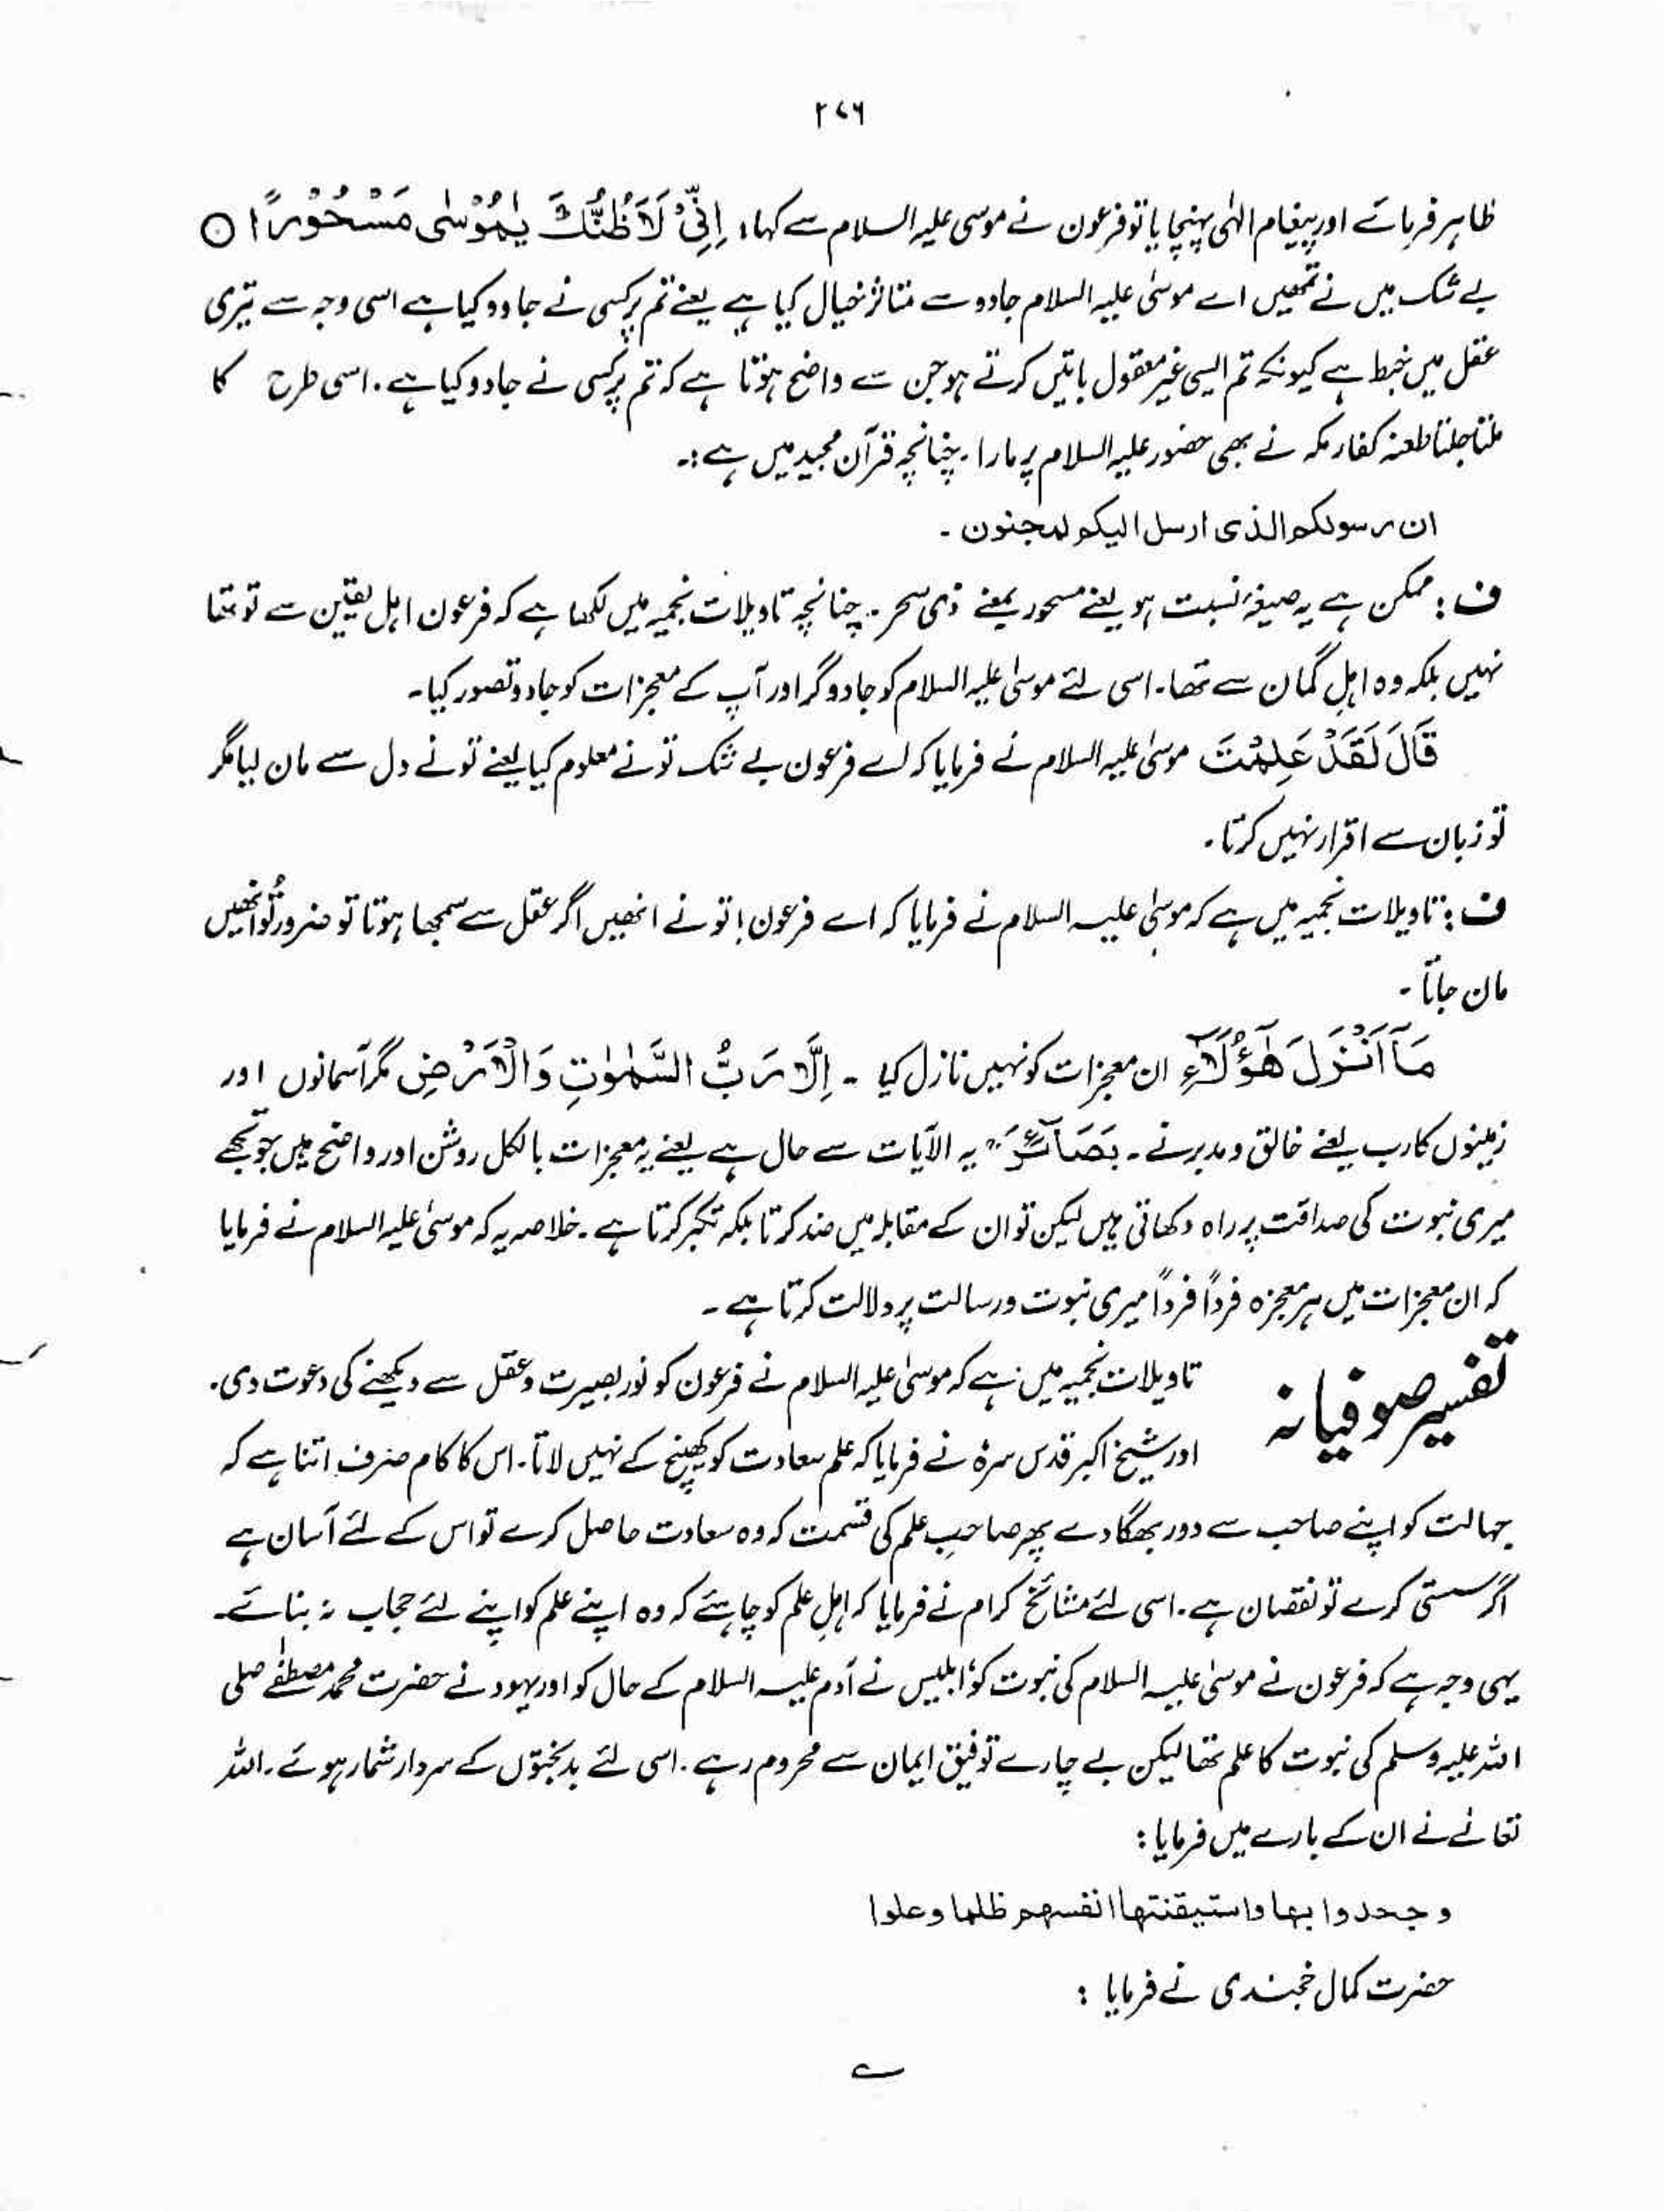 ۲۷۶
ظاہر فرمائے اور پیغام الٰہی پہنچایا تو فرعون نے موسی علیہ السلام سے کہا: اِنِّیْ لَاَظُنُّکَ یٰمُوْسٰی مَسْحُوْرًا ○
بے شک میں نے تمھیں اے موسیٰ علیہ السلام جادو سے متاثر خیال کیا ہے یعنے تم پر کسی نے جادو کیا ہے اسی وجہ سے تیری
عقل میں خبط ہے کیونکہ تم ایسی غیر معقول باتیں کرتے ہو جن سے واضح ہوتا ہے کہ تم پر کسی نے جادو کیا ہے۔ اسی طرح کا
ملتا جلتا طعنہ کفار مکہ نے بھی حضور علیہ السلام پر مارا۔ چنانچہ قرآن مجید میں ہے:۔
ان رسولکم الذی ارسل الیکم لمجنون۔
ف: ممکن ہے یہ صیغۂ نسبت ہو یعنے مسحور بمعنے ذی سحر۔ چنانچہ تاویلات نجمیہ میں لکھا ہے کہ فرعون اہل یقین سے تو تھا
نہیں بلکہ وہ اہلِ گمان سے تھا۔ اسی لئے موسیٰ علیہ السلام کو جادوگر اور آپ کے معجزات کو جادو تصور کیا۔
قَالَ لَقَدْ عَلِمْتَ موسیٰ علیہ السلام نے فرمایا کہ اے فرعون بے شک تو نے معلوم کیا یعنے تو نے دل سے مان لیا مگر
تو زبان سے اقرار نہیں کرتا۔
ف: تاویلات نجمیہ میں ہے کہ موسیٰ علیہ السلام نے فرمایا کہ اے فرعون! تو نے انھیں اگر عقل سے سمجھا ہوتا تو ضرور تُو انھیں
مان جاتا۔
مَآ اَنْزَلَ ھٰٓؤُلَآءِ ان معجزات کو نہیں نازل کیا۔ اِلَّا رَبُّ السَّمٰوٰتِ وَالْاَرْضِ مگر آسمانوں اور
زمینوں کا رب یعنے خالق و مدبر نے۔ بَصَآئِرَ یہ الآیات سے حال ہے یعنے یہ معجزات بالکل روشن اور واضح ہیں جو تجھے
میری نبوت کی صداقت پر راہ دکھاتی ہیں لیکن تو ان کے مقابلہ میں ضد کرتا بلکہ تکبر کرتا ہے۔ خلاصہ یہ کہ موسیٰ علیہ السلام نے فرمایا
کہ ان معجزات میں ہر معجزہ فرداً فرداً میری نبوت و رسالت پر دلالت کرتا ہے۔
تفسیر صوفیانہ
تاویلات نجمیہ میں ہے کہ موسیٰ علیہ السلام نے فرعون کو نور بصیرت و عقل سے دیکھنے کی دعوت دی۔
اور شیخ اکبر قدس سرہٗ نے فرمایا کہ علم سعادت کو کھینچ کے نہیں لاتا۔ اس کا کام صرف اتنا ہے کہ
جہالت کو اپنے صاحب سے دور بھگا دے پھر صاحبِ علم کی قسمت کہ وہ سعادت حاصل کرے تو اس کے لئے آسان ہے
اگر سستی کرے تو نقصان ہے۔ اسی لئے مشائخ کرام نے فرمایا کہ اہلِ علم کو چاہئے کہ وہ اپنے علم کو اپنے لئے حجاب نہ بنائے۔
یہی وجہ ہے کہ فرعون نے موسیٰ علیہ السلام کی نبوت کو، ابلیس نے آدم علیہ السلام کے حال کو اور یہود نے حضرت محمد مصطفٰے صلی
اللہ علیہ وسلم کی نبوت کا علم تھا لیکن بے چارے توفیق ایمان سے محروم رہے۔ اسی لئے بدبختوں کے سردار شمار ہوئے۔ اللہ
تعالےٰ نے ان کے بارے میں فرمایا:
و جحدوا بھا واستیقنتھا انفسھم ظلما وعلوا
حضرت کمال خجندی نے فرمایا:
ے